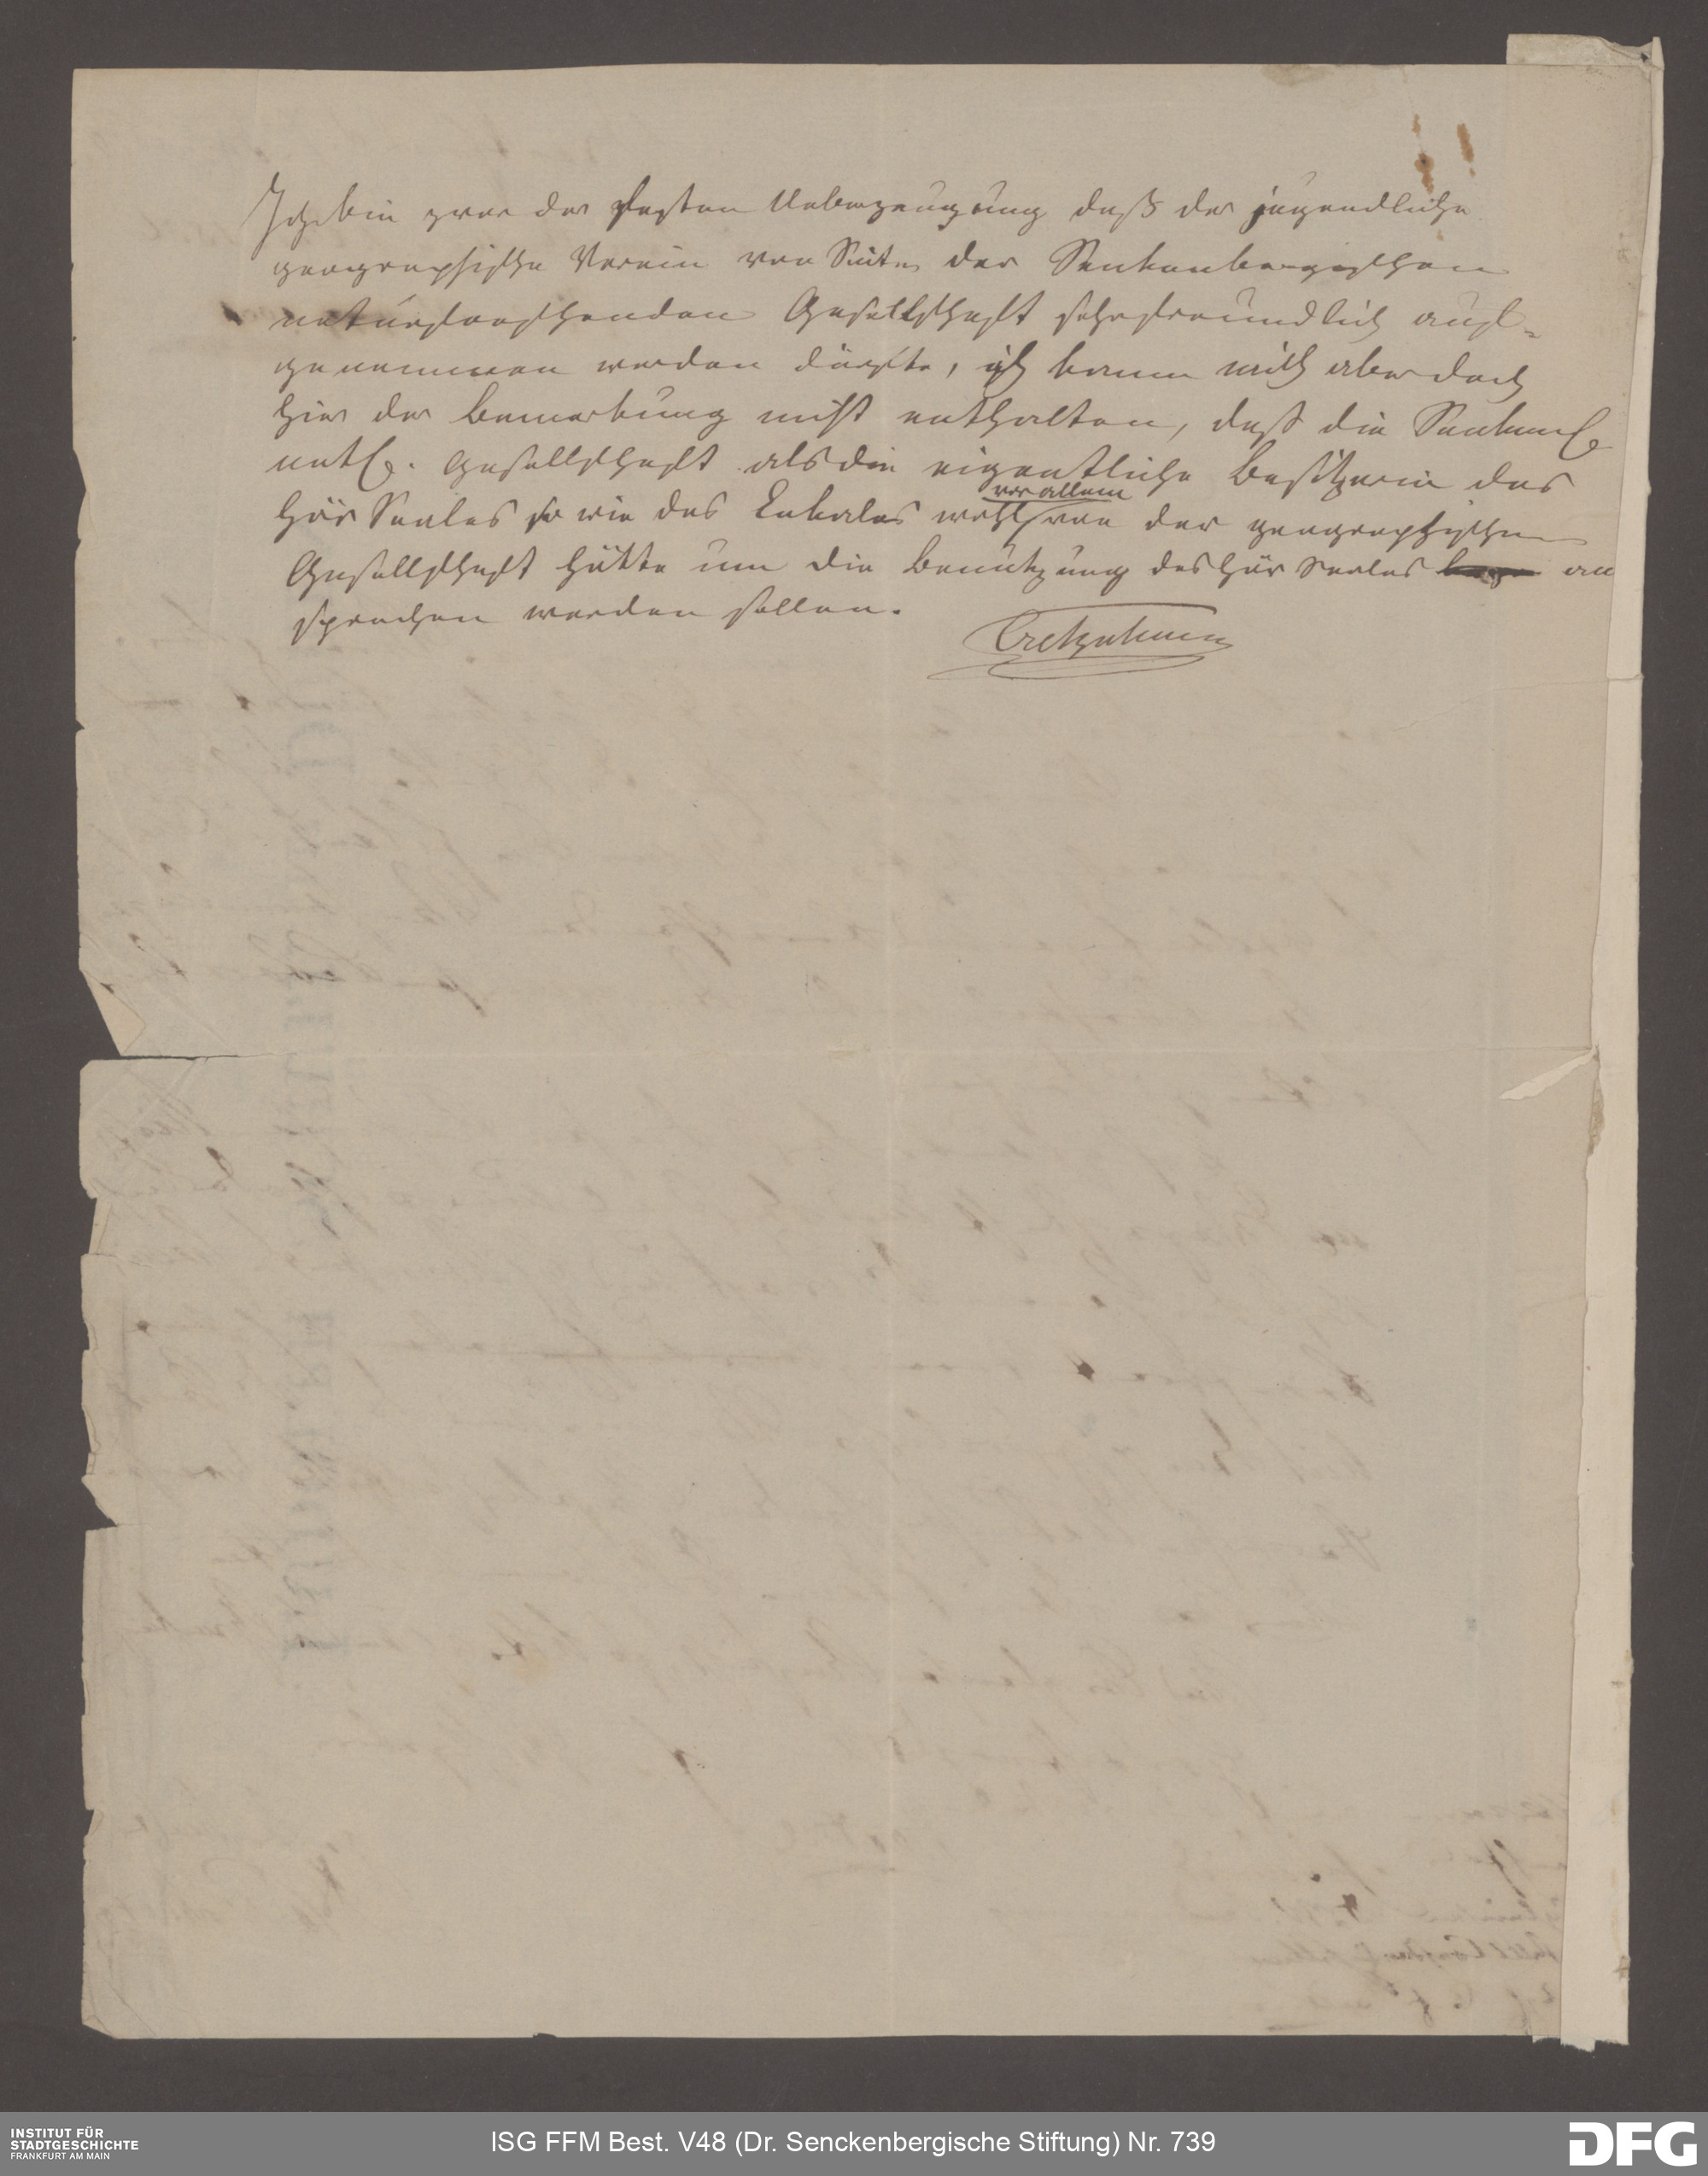 Ich bin zwar der festen Ueberzeugung daß der jugendliche
geographische Verein von Seiten der Senkenbergischen
naturforschenden Gesellschaft sehr freundlich auf-
genommen werden dürfte, ich kann mich aber doch
hier der Bemerkung nicht enthalten, daß die Senkenb
natf. Gesellschaft als die eigentliche Besitzerin des
Hör Saales so wie des Lokales wohl vor allem von der geographischen
Gesellschaft hätte um die Benutzung des Hör Saales an
sprochen werden sollen.
Cretzschmar
INSTITUT FÜR
STADTGESCHICHTE
FRANKFURT AM MAIN
ISG FFM Best. V48 (Dr. Senckenbergische Stiftung) Nr. 739
DFG